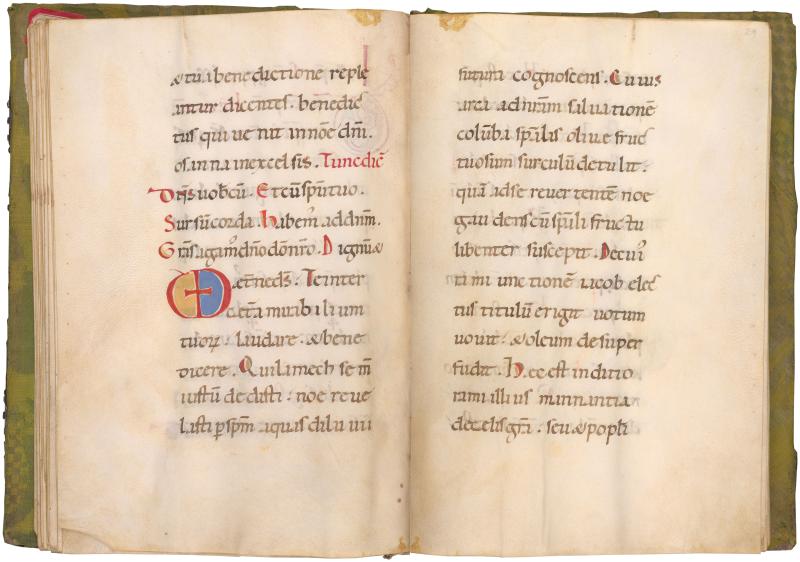 & tua benedictione reple
antur dicentes. benedic
tus qui uenit in nōe dn̄i.
osanna in excelsis. Tunc dic̄
Dn̄s uob̄cū. Et cū sp̄u tuo.
Sursū corda. habem' ad dn̄m.
Gr̄as agam' dn̄o dō nr̄o. Dignū &
aet̄ne ds̄. Te inter
cetera mirabilium
tuorꝝ laudare. & bene
dicere. Qui lamech semī
iustū dedisti : noe reue
lasti ꝑ sp̄m aquas diluuii
29
futuri cognoscens. Cuius
arca ad nr̄am saluationē
colūba sp̄alis oliue fruc
tuosum surculū detulit.
quā ad se reuertentē noe
gaudens cū sp̄uali fructu
libenter suscepit. Decursi
ti mi unctionē iacob elec
tus titulū erigit uotum
uouit & oleum desuper
fudit. Hec est inditio
rami illius minnantia
de celis gr̄a. seu & pop̄li